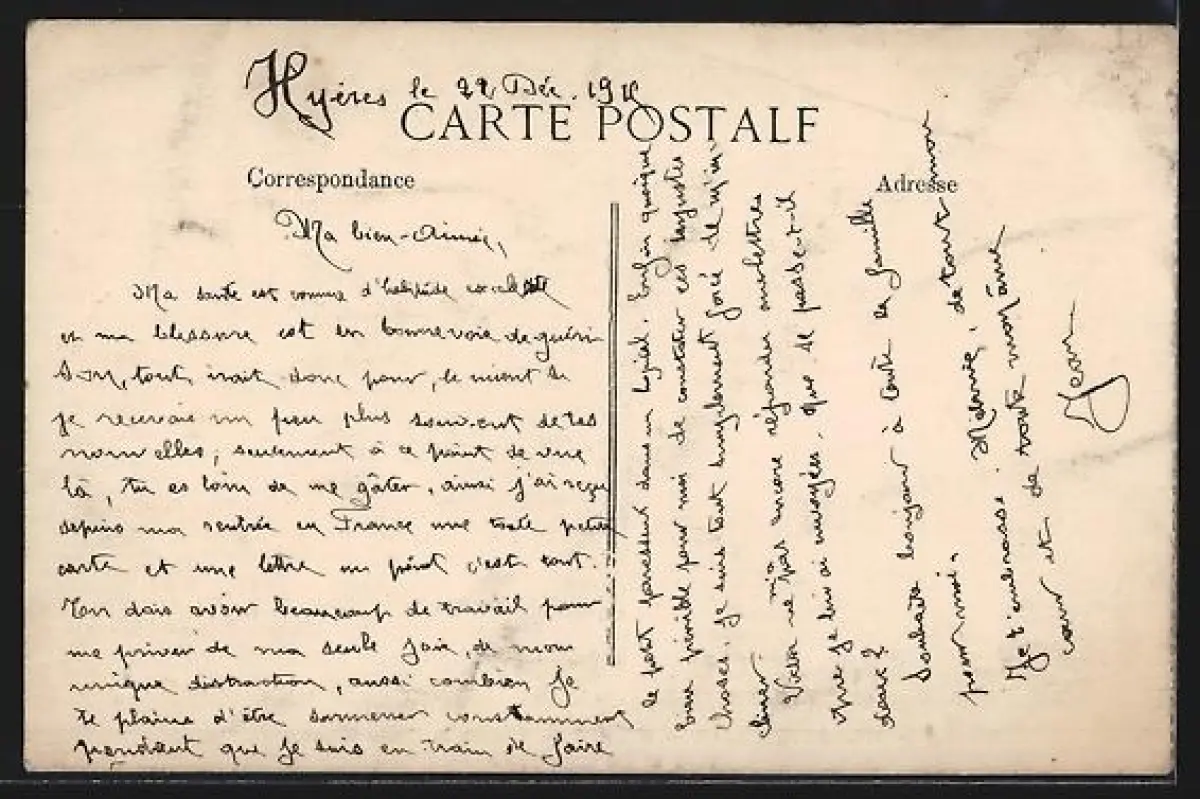 Hyères le 22 Déc. 191
CARTE POSTALE
Correspondance
Adresse
Ma bien-Aimée,
Ma santé est comme d'habitude excellente
et ma blessure est en bonne voie de guéri-
son, tout irait donc pour le mieux si
je recevais un peu plus souvent de tes
nouvelles, seulement à ce point de vue
là, tu es loin de me gâter, ainsi j'ai reçu
depuis ma rentrée en France une toute petite
carte et une lettre un point c'est tout.
Tu dois avoir beaucoup de travail pour
me priver de ma seule joie, de mon
unique distraction, aussi combien je
te plains d'être surmener constamment
pendant que je suis en train de faire
le petit paresseux dans un Lycée. Enfin quoique
bien pénible pour moi de constater ces injustes
choses, je suis tout simplement forcé de m'in-
cliner.
Victor ne m'a pas encore répondu aux lettres
que je lui ai envoyées. Que se passe-t-il
donc?
Souhaite bonjour à toute la famille
pour moi.
Je t'embrasse, Marie, de tout mon
cœur et de toute mon âme
Jean